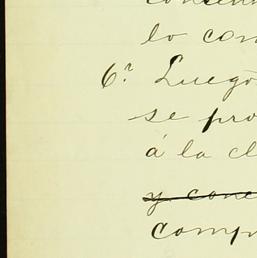 lo con
6.ª Luego
se pro
á la cl
y conc
comp